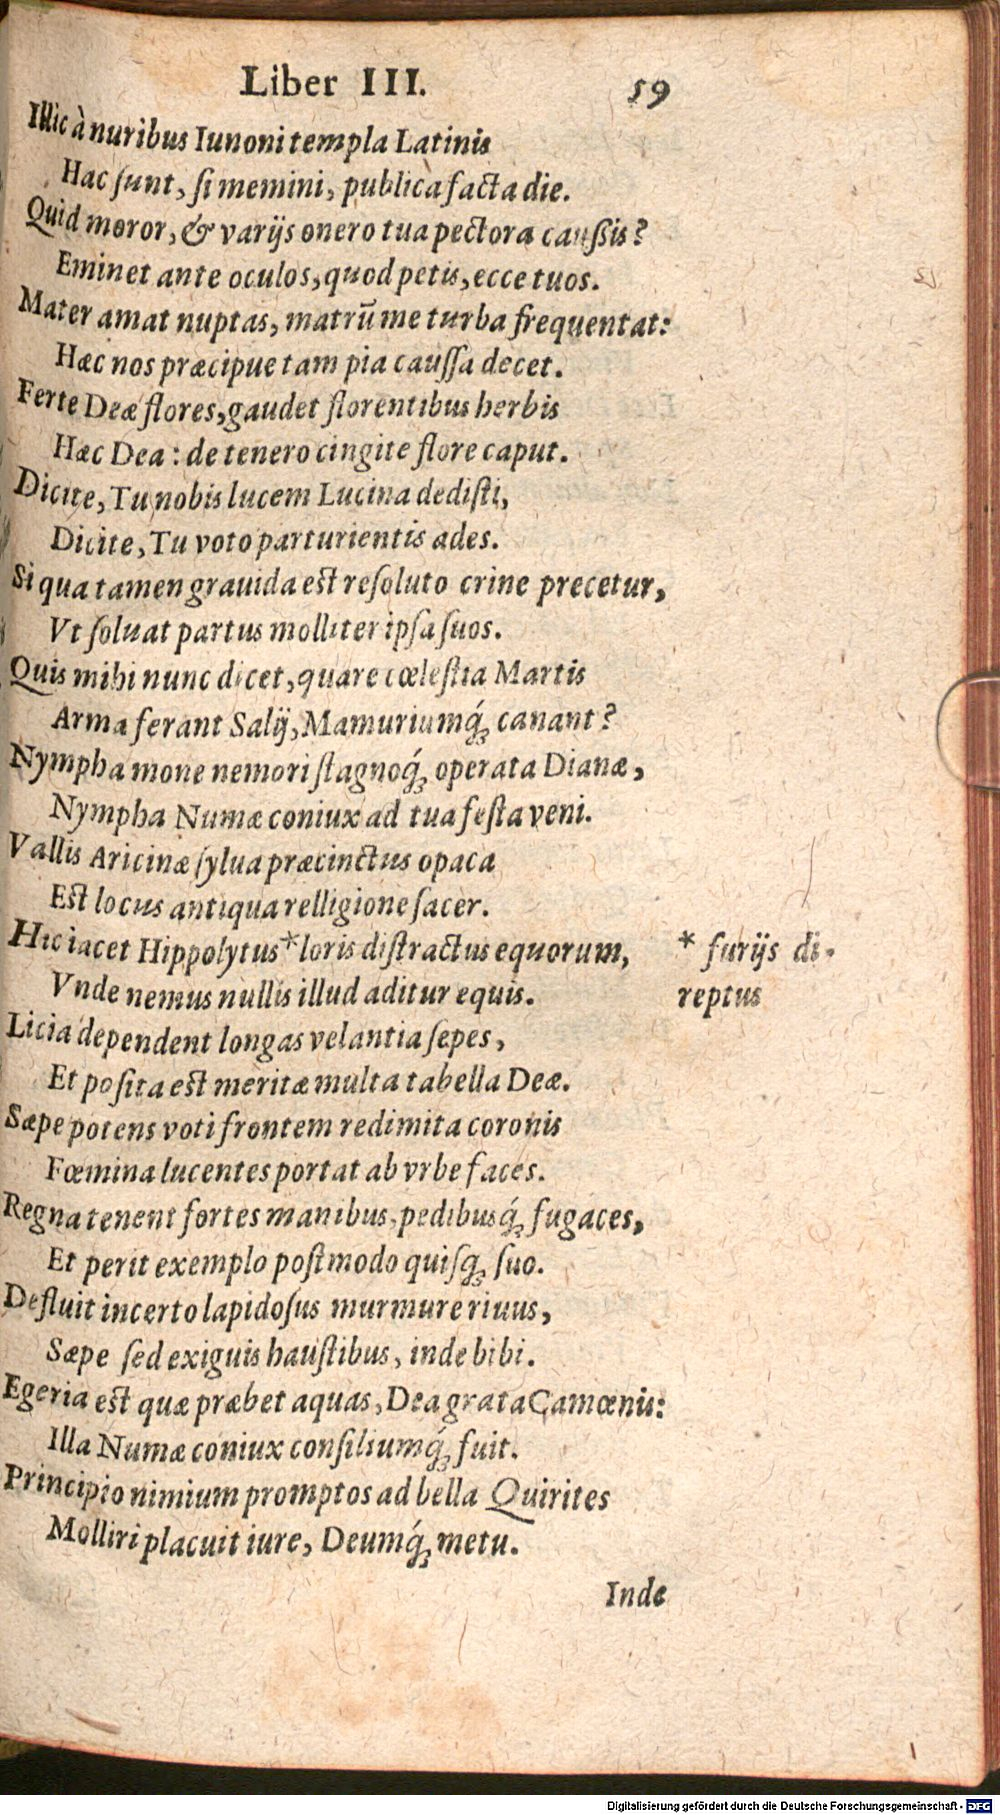 Liber III. 59
Illic à nuribus Iunoni templa Latinis
Hac ſunt, ſi memini, publica facta die.
Quid moror, & varijs onero tua pectora cauſsis?
Eminet ante oculos, quod petis, ecce tuos.
Mater amat nuptas, matrū me turba frequentat:
Hæc nos præcipue tam pia cauſſa decet.
Ferte Deæ flores, gaudet florentibus herbis
Hæc Dea: de tenero cingite flore caput.
Dicite, Tu nobis lucem Lucina dediſti,
Dicite, Tu voto parturientis ades.
Si qua tamen grauida est reſoluto crine precetur,
Vt ſoluat partus molliter ipſa ſuos.
Quis mihi nunc dicet, quare cœleſtia Martis
Arma ferant Salij, Mamuriumq́; canant?
Nympha mone nemori ſtagnoq́; operata Dianæ,
Nympha Numæ coniux ad tua feſta veni.
Vallis Aricinæ ſylua præcinctus opaca
Est locus antiqua relligione ſacer.
Hic iacet Hippolytus * loris diſtractus equorum,
* furijs di-
reptus
Vnde nemus nullis illud aditur equis.
Licia dependent longas velantia ſepes,
Et poſita est meritæ multa tabella Deæ.
Sæpe potens voti frontem redimita coronis
Fœmina lucentes portat ab vrbe faces.
Regna tenent fortes manibus, pedibusq́; fugaces,
Et perit exemplo poſtmodo quiſq; ſuo.
Defluit incerto lapidoſus murmure riuus,
Sæpe ſed exiguis hauſtibus, inde bibi.
Egeria est quæ præbet aquas, Dea grata Camœnis:
Illa Numæ coniux conſiliumq́; fuit.
Principio nimium promptos ad bella Quirites
Molliri placuit iure, Deumq́; metu.
Inde
Digitalisierung gefördert durch die Deutsche Forschungsgemeinschaft - DFG